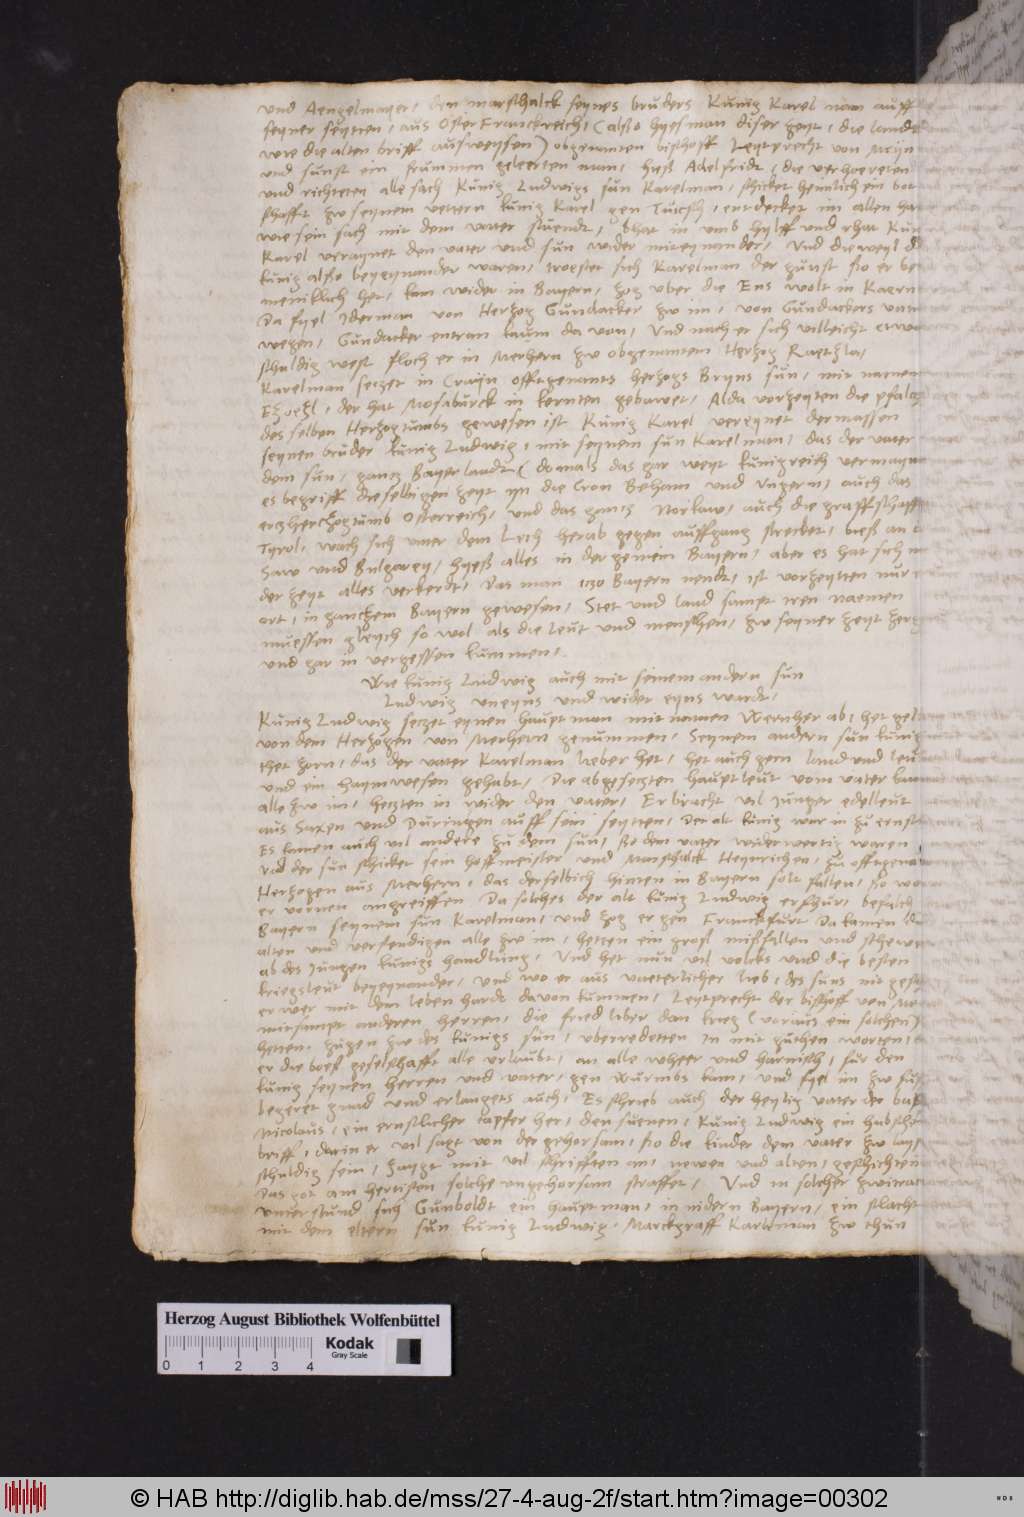 und Aengelmayer, den marschalck seynes bruders Kunig Karel nam auff
seyner seytten, aus Oster Franckreich, (also hyes man diser zeyt, die landt
wie die alten brieff ausweysen) obgenanten bischoff Leytprecht von Meyn
und sunst ein frummen geleerten man, hyess Adelfridt, die verhoereten
und richteten alle sach Kunig Ludwigs sun Karelman, schicket heimlich ein bot
schafft zw seynem vettern kunig Karel gen Tutsch, entdecket im allen ha
wie sein sach mit dem vatter stuendt, bhat in umb hylff und rhat Kun
Karel verainet den vater und sun wider miteynander, Und dieweyl d
kunig also beyeynander waren, troestet sich Karelman der gunst so er be
meniklich het, kam wider in Bayern, zog uber die Ens wolt in Kaern
Da fyel Iderman von Herzog Gundacker zw im, von Gundackers untr
wegen, Gundacker entran kaum da von, Und nach er sich villeicht etwa
schuldig west floch er in Merhern zw obgenantem Herzog Raetzla,
Karelman setzet in Crayn offtgenants herzogs Bryns sun, mit namen
Ehzoehl, der hat Mosaburck in kernten gebawet, Alda vorzeytten die pfalcz
des selben Herzogtumbs gewesen ist Kunig Karel vereynet dermassen
seynen bruder kunig Ludwig, mit seynem sun Karelman, das der vater
dem sun, gantz Bayerlandt (domals das gar weyt kunigreich vermayn
es begriff dieselbigen zeyt yn die Cron Beham und Ungern, auch das
erzherchzogtumb Osterreich, und das gants Norkaw, auch die graffschafft
Tyrol, wach sich unter dem Lech herab gegen auffgang strecket, biess an d
Saw und Bulgarey, hyess alles in der gemein Bayern, aber es hat sich n
der zeyt alles verkerdt, Das man itzo Bayern nendt, ist vorzeytten nur
ort, in ganczem Bayern gewesen, Stet und land sampt iren naemen
muessen gleych so wol als die leut und menschen, zw seyner zeyt herg
und gar in vergessen kummen,
Wie kunig Ludwig auch mit seinem andern sun
Ludwig uneyns und wider eyns wardt,
Kunig Ludwig seczet eynen hauptman mit namen Wernher ab, het gel
von dem Herzogen von Merhern genummen, Seynem andern sun kunig
thet zorn, das der vater Karelman lieber het, het auch gern land und leu
und ein haymwesen gehabt, Die abgeseczten hauptleut vom vater kam
alle zw im, heczten in wider den vater, Er bracht vil junger edelleut
aus Saxen und Duringen auff sein seytten, Der alt kunig war in zu ernst
Es kamen auch vil andere zu dem sun, so dem vater widerwertig waren
Und der sun schicket sein hoffmeister und Marschalck Heynrichen, zu offtgena
Herzogen aus Merhern, das derselbich hinten in Bayern solt fallen, so wo
er vornen angreiffen Da solches der alt kunig Ludwig erfhur, befalch
Bayern seynem sun Karelman, und zog er gen Franckfurt Da kamen d
alten und verstendigen alle zw im, hetten ein gross misfallen und schew
ab des Jungen kunigs handlung, Und het nun vil volcks und die besten
kriegsleut beyeynander, und wo er aus vaeterlicher lieb, des suns nit gesch
er wer mit dem leben hardt davon kummen, Leytprecht der bischoff von Me
mitsampt anderen herren, die fried liber dan krieg (voraus ein solchen)
hetten, zugen zw des kunigs sun, uberredetten In mit guthen worten,
er die boess geselschafft alle urlaubt, an alle wheer und harnisch, fur den
kunig seynen herren und vater, gen Wurmbs kam, und fyel im zw fus
begeret gnad und erlangets auch, Es schrieb auch der heylig vater der bab
Nicolaus, ein ernstlicher tapfer her, den suenen, Kunig Ludwig ein hubsche
brieff, darin er vil sagt von der gehorsam, so die kinder dem vater zw lay
schuldig sein, zaygt mit vil schrifften an, newen und alten, geschichten
Das got am hertisten solche ungehorsam straffet, Und in solcher zwitrac
unterstund sich Gunboldt ein hauptman, in nidern Bayern, ein schlacht
mit dem eltern sun kunig Ludwig, Marckgraff Karelman zw thun
Herzog August Bibliothek Wolfenbüttel
Kodak
Gray Scale
0 1 2 3 4
© HAB http://diglib.hab.de/mss/27-4-aug-2f/start.htm?image=00302